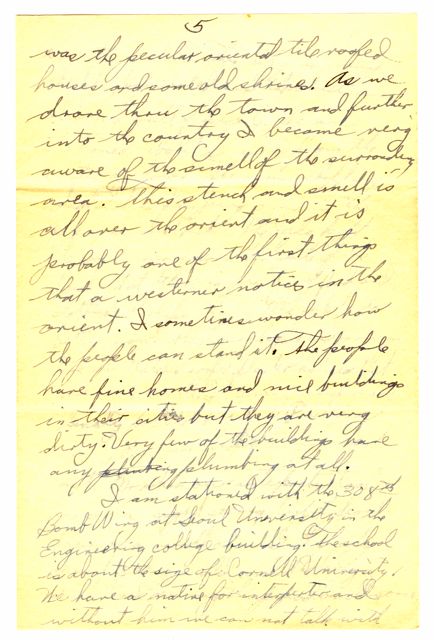 5
was the peculiar oriental tile roofed
houses and some old shrines. As we
drove thru the town and further
into the country I became very
aware of the smell of the surrounding
area. This stench and smell is
all over the orient and it is
probably one of the first things
that a westerner notices in the
orient. I sometimes wonder how
the people can stand it. The people
have fine homes and nice buildings
in their cities but they are very
dirty. Very few of the buildings have
any plumbing plumbing at all.
I am stationed with the 308th
Bomb Wing at Seoul University in the
Engineering college building. The school
is about the size of Cornell University.
We have a native for interpreter and
without him we can not talk with